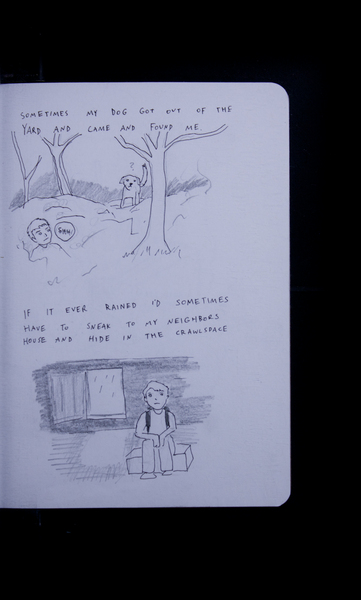 SOMETIMES MY DOG GOT OUT OF THE
YARD AND CAME AND FOUND ME.
?
SHH.
IF IT EVER RAINED I'D SOMETIMES
HAVE TO SNEAK TO MY NEIGHBORS
HOUSE AND HIDE IN THE CRAWLSPACE